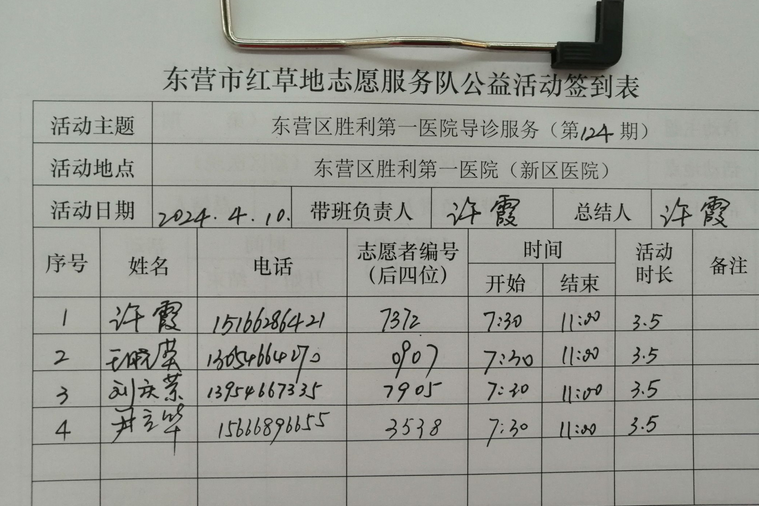 东营市红草地志愿服务队公益活动签到表
活动主题 东营区胜利第一医院导诊服务（第124期）
活动地点 东营区胜利第一医院（新区医院）
活动日期 2024.4.10. 带班负责人 许霞 总结人 许霞
序号 姓名 电话 志愿者编号（后四位） 时间 开始 结束 活动时长 备注
1 许霞 15166286421 7372 7:30 11:00 3.5
2 13054664270 0907 7:30 11:00 3.5
3 刘庆荣 13954667335 7905 7:30 11:00 3.5
4 15666896655 3538 7:30 11:00 3.5